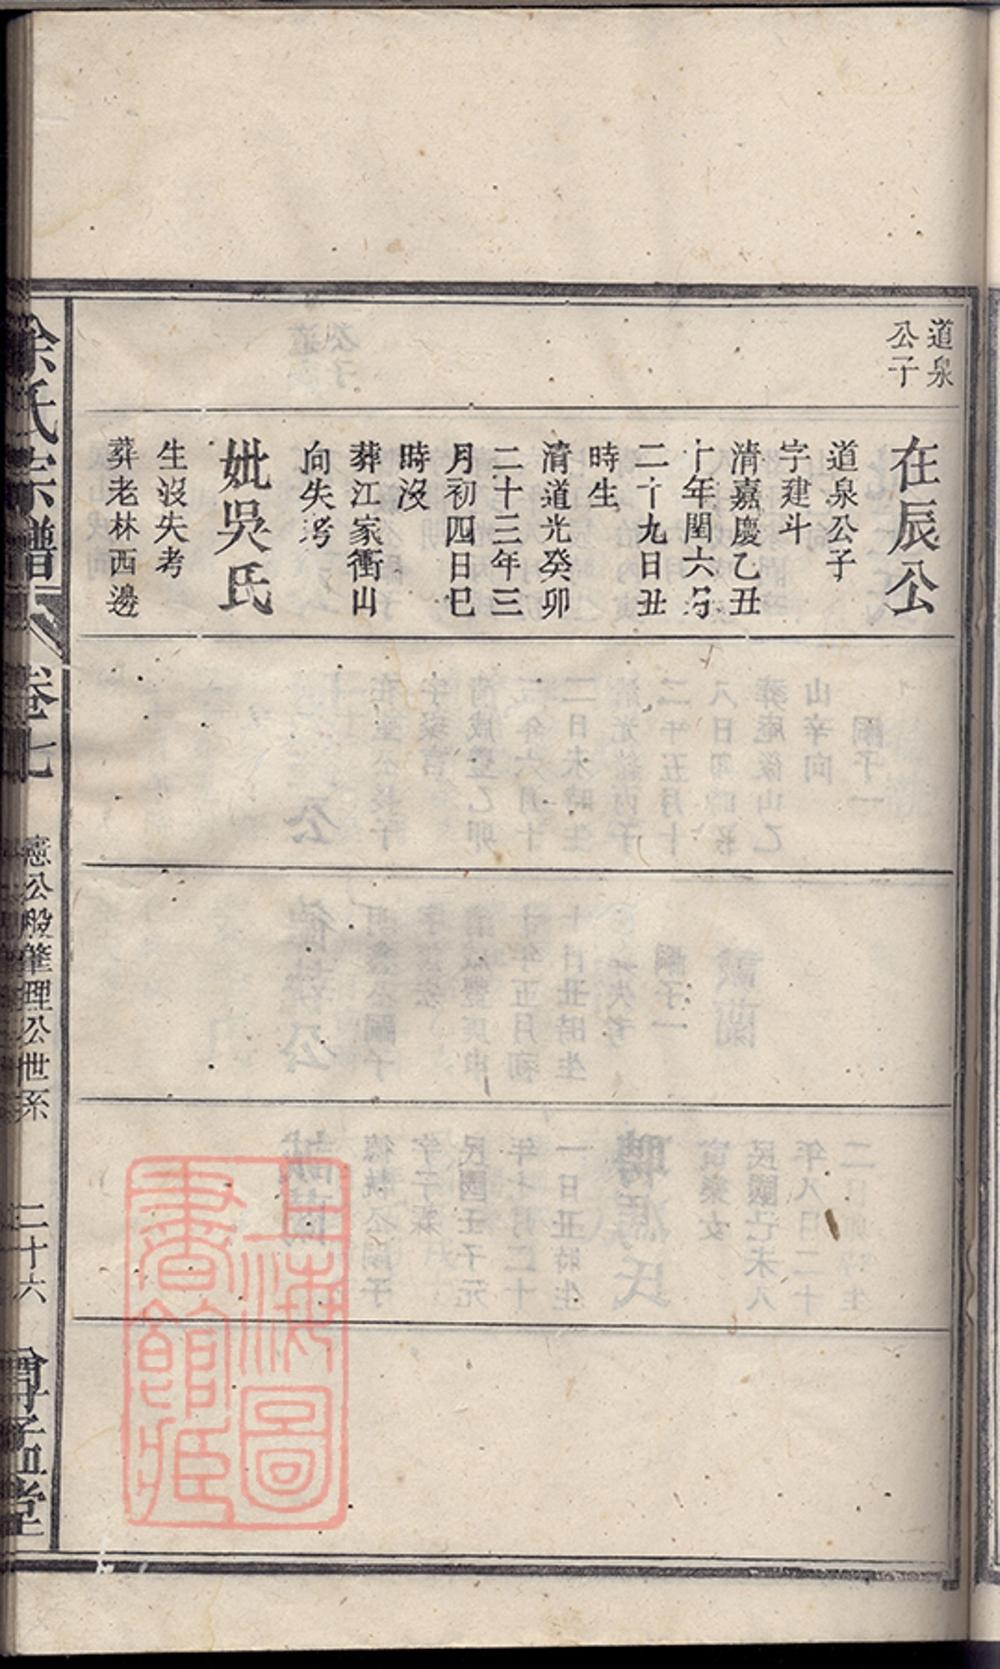 道泉
公子
在辰公
道泉公子
字建斗
清嘉慶乙丑
十年閏六月
二十九日丑
時生
清道光癸卯
二十三年三
月初四日巳
時沒
葬江家衝山
向失考
妣吳氏
生沒失考
葬老林西邊
氏宗譜
卷七
憲公股肇理公世系
二十六
堂
上海圖
書館藏